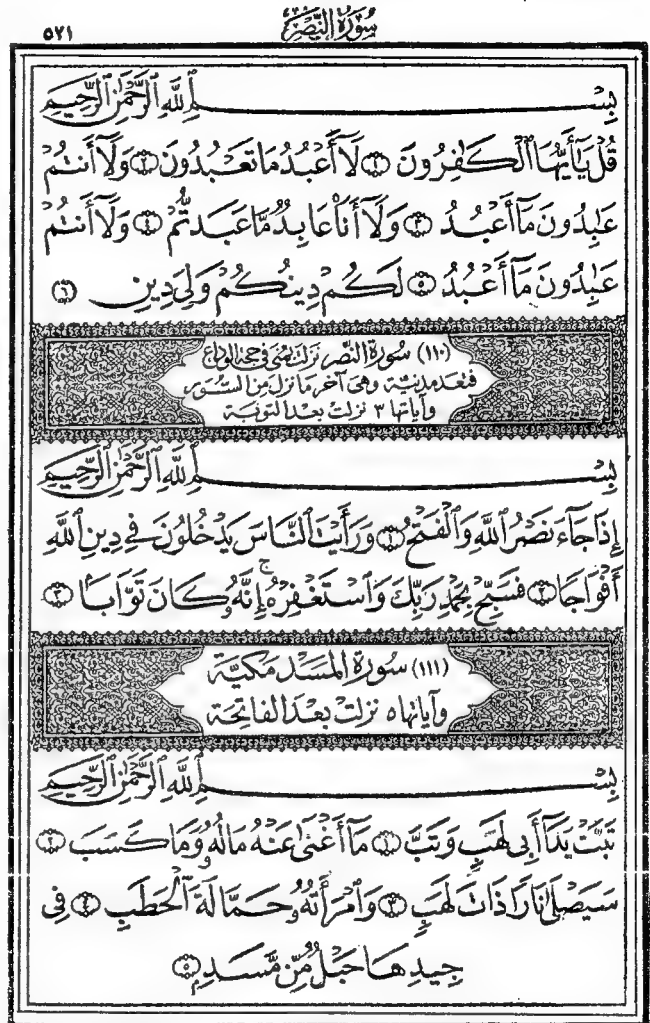 سُورَةُ النَّصْرِ
٥٢١
بِسْمِ ٱللَّهِ ٱلرَّحْمَٰنِ ٱلرَّحِيمِ
قُلْ يَٰٓأَيُّهَا ٱلْكَٰفِرُونَ ۝١ لَآ أَعْبُدُ مَا تَعْبُدُونَ ۝٢ وَلَآ أَنتُمْ
عَٰبِدُونَ مَآ أَعْبُدُ ۝٣ وَلَآ أَنَا۠ عَابِدٌ مَّا عَبَدتُّمْ ۝٤ وَلَآ أَنتُمْ
عَٰبِدُونَ مَآ أَعْبُدُ ۝٥ لَكُمْ دِينُكُمْ وَلِىَ دِينِ ۝٦
(١١٠) سُورَة النَّصْر نزلَت بمنى في حجّة الوداع
فتعد مدنية وهي آخر ما نزل من السور
وآياتها ٣ نزلت بعد التوبة
بِسْمِ ٱللَّهِ ٱلرَّحْمَٰنِ ٱلرَّحِيمِ
إِذَا جَآءَ نَصْرُ ٱللَّهِ وَٱلْفَتْحُ ۝١ وَرَأَيْتَ ٱلنَّاسَ يَدْخُلُونَ فِى دِينِ ٱللَّهِ
أَفْوَاجًا ۝٢ فَسَبِّحْ بِحَمْدِ رَبِّكَ وَٱسْتَغْفِرْهُ ۚ إِنَّهُۥ كَانَ تَوَّابًۢا ۝٣
(١١١) سُورَة المَسَد مَكيّة
وآياتها ٥ نزلت بعد الفاتحة
بِسْمِ ٱللَّهِ ٱلرَّحْمَٰنِ ٱلرَّحِيمِ
تَبَّتْ يَدَآ أَبِى لَهَبٍ وَتَبَّ ۝١ مَآ أَغْنَىٰ عَنْهُ مَالُهُۥ وَمَا كَسَبَ ۝٢
سَيَصْلَىٰ نَارًا ذَاتَ لَهَبٍ ۝٣ وَٱمْرَأَتُهُۥ حَمَّالَةَ ٱلْحَطَبِ ۝٤ فِى
جِيدِهَا حَبْلٌ مِّن مَّسَدٍۭ ۝٥